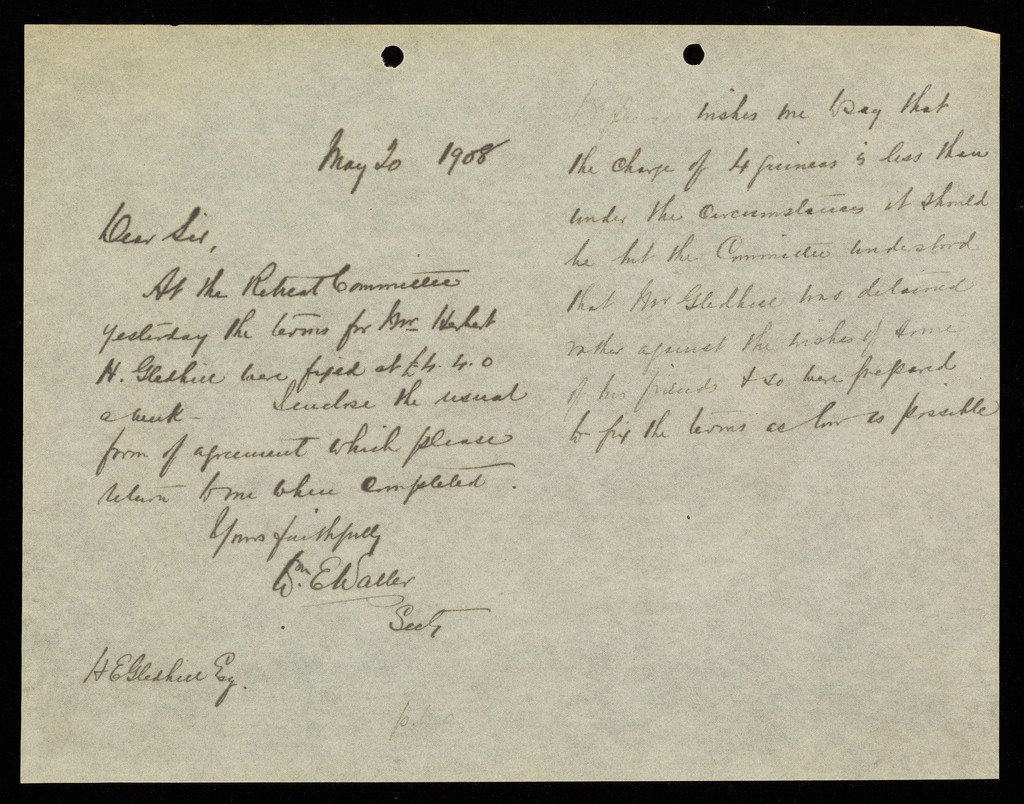 May 20 1908
Dear Sir,
At the Retreat Committee
yesterday the terms for Mr Herbert
H. Gledhill were fixed at £4.4.0
a week - I enclose the usual
form of agreement which please
return to me when completed.
Yours faithfully
Wm. E Waller
Secty
H E Gledhill Esq.
p.t.o
wishes me to say that
the charge of 4 guineas is less than
under the circumstances it should
be but the Committee understood
that Mr Gledhill was detained
rather against the wishes of some
of his friends & so were prepared
to fix the terms as low as possible